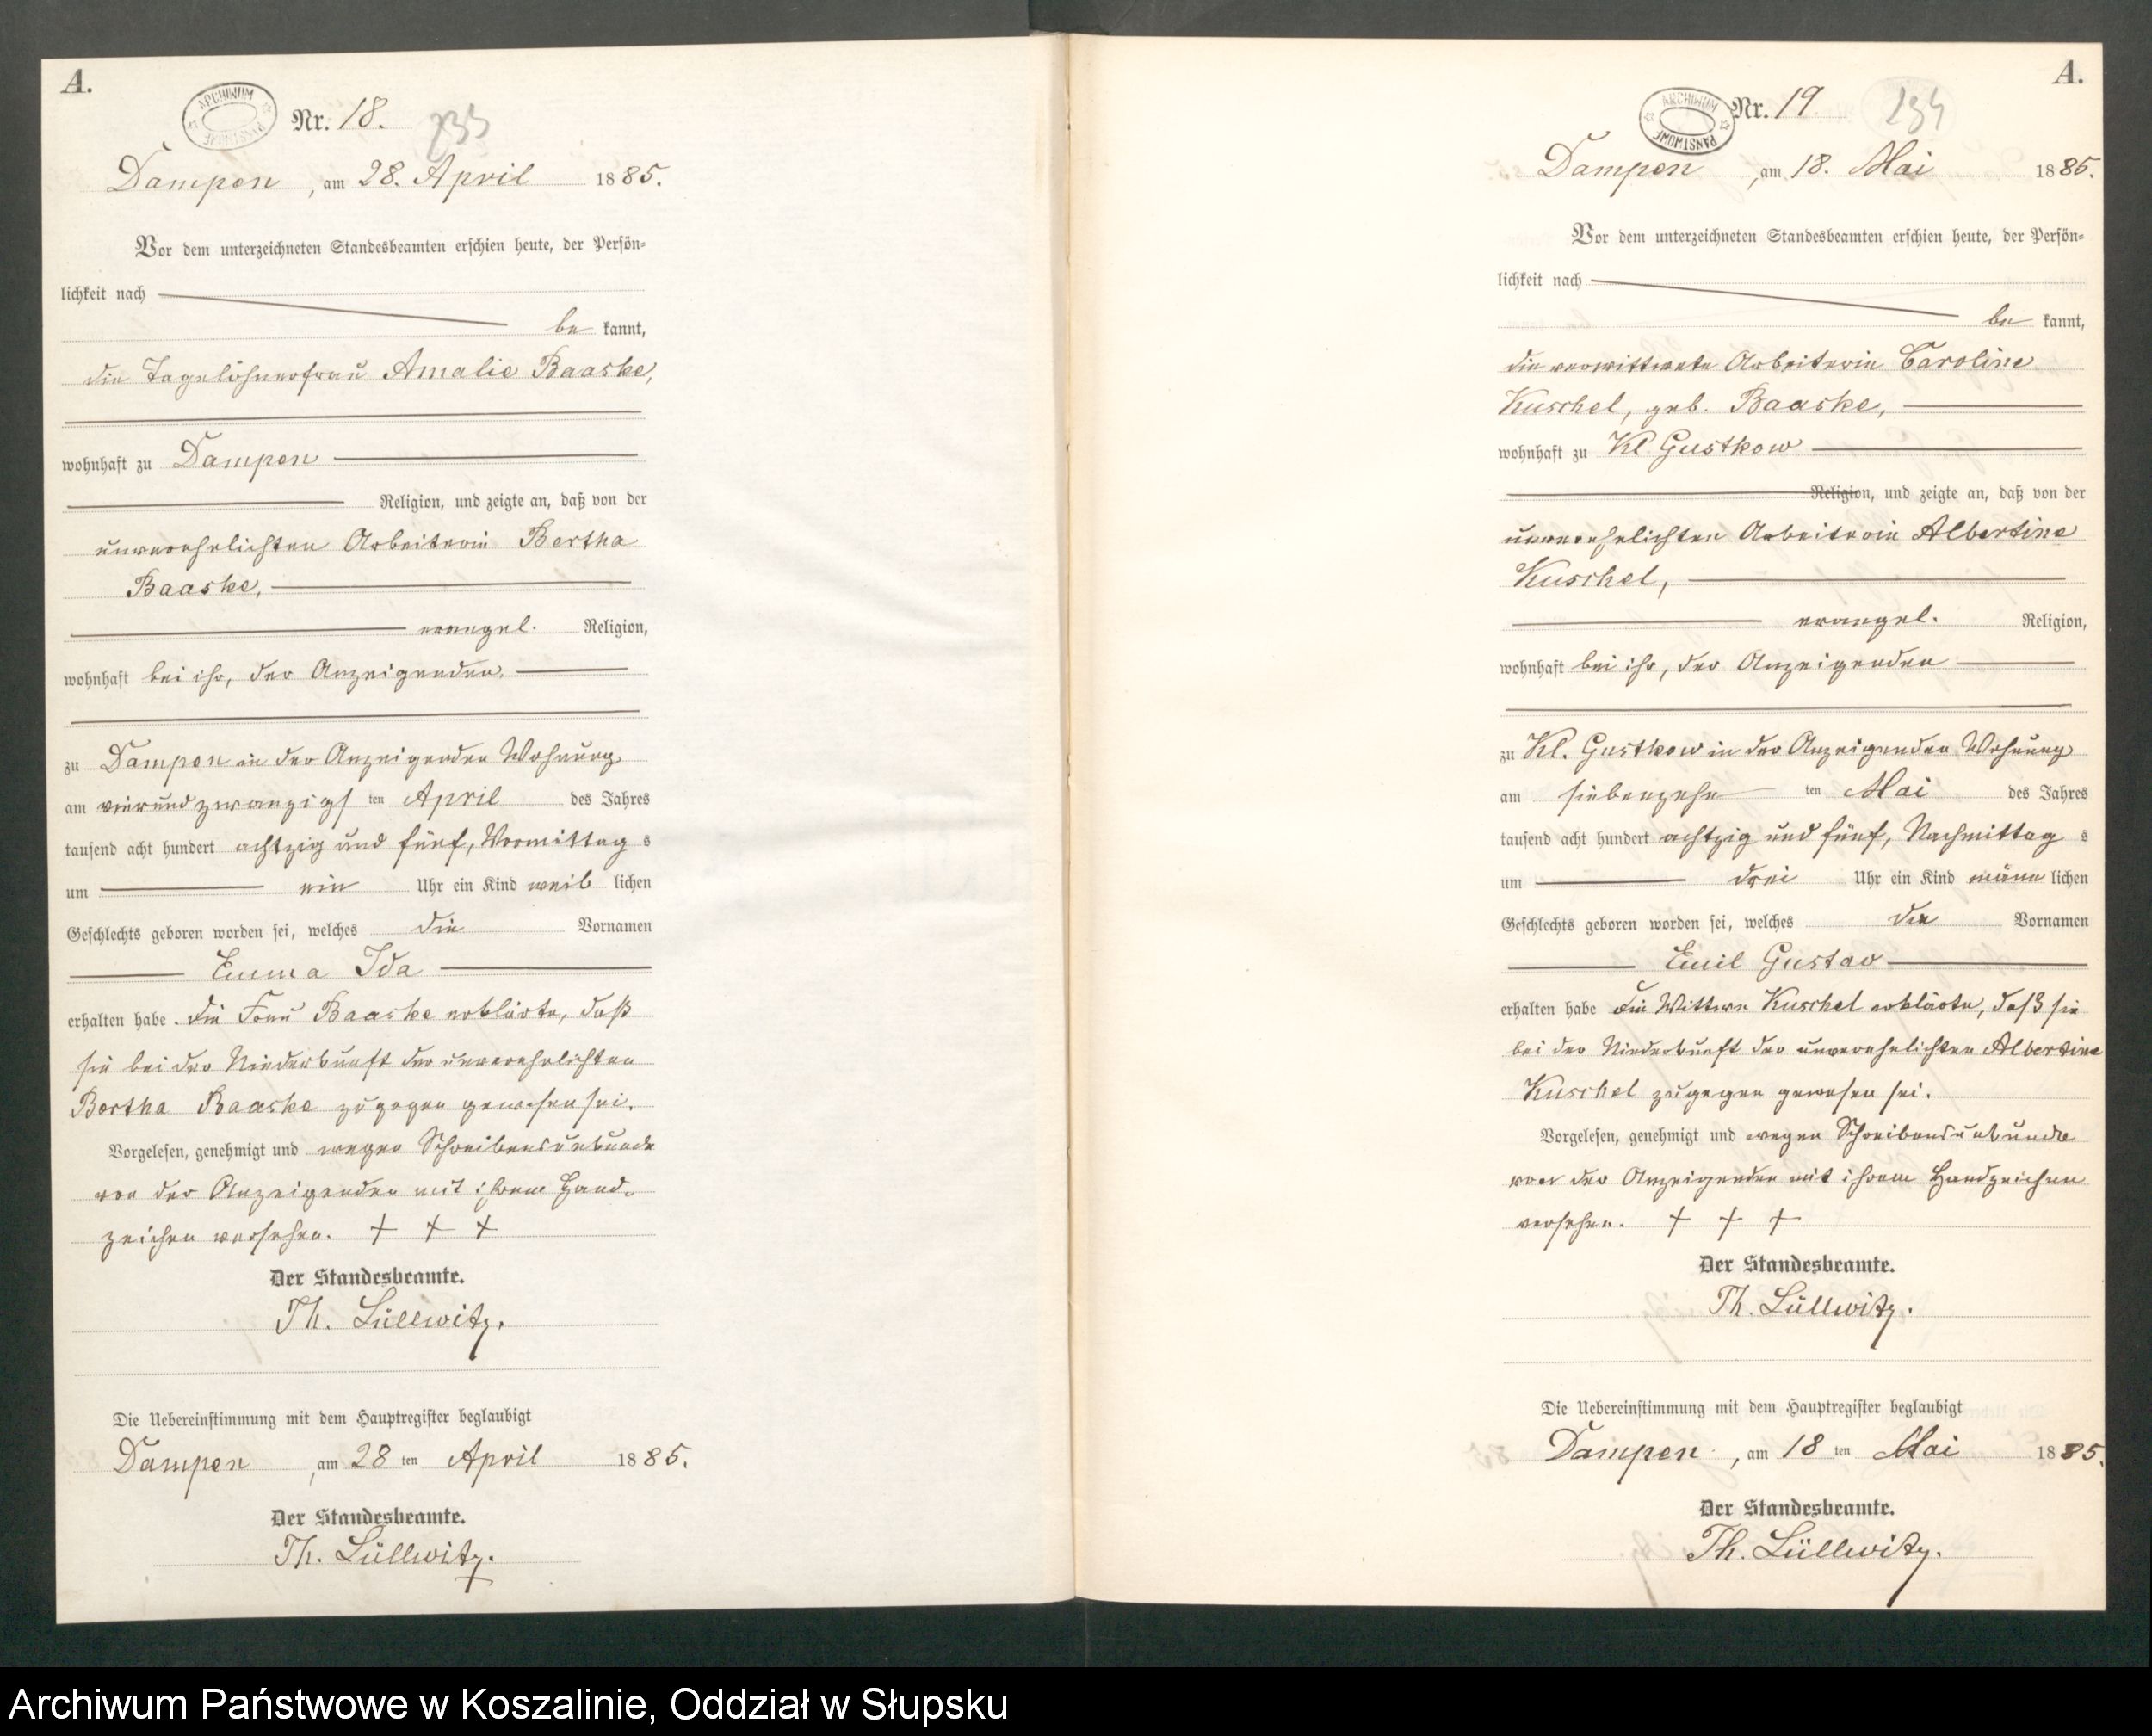 A.
ARCHIWUM PAŃSTWOWE
Nr. 18.
Dampen, am 28. April 1885.
Vor dem unterzeichneten Standesbeamten erschien heute, der Persön=
lichkeit nach
be kannt,
die Tagelöhnerfrau Amalie Baaske,
wohnhaft zu Dampen
Religion, und zeigte an, daß von der
unverehelichten Arbeiterin Bertha
Baaske,
evangel. Religion,
wohnhaft bei ihr, der Anzeigenden,
zu Dampen in der Anzeigenden Wohnung
am vierundzwanzigs ten April des Jahres
tausend acht hundert achtzig und fünf, Vormittag s
um ein Uhr ein Kind weib lichen
Geschlechts geboren worden sei, welches die Vornamen
Emma Ida
erhalten habe. Die Frau Baaske erklärte, daß
sie bei der Niederkunft der unverehelichten
Bertha Baaske zugegen gewesen sei.
Vorgelesen, genehmigt und wegen Schreibensunkunde
von der Anzeigenden mit ihrem Hand-
zeichen versehen. + + +
Der Standesbeamte.
Th. Lüllwitz.
Die Uebereinstimmung mit dem Hauptregister beglaubigt
Dampen, am 28 ten April 1885.
Der Standesbeamte.
Th. Lüllwitz.
A.
ARCHIWUM PAŃSTWOWE
Nr. 19. 134
Dampen, am 18. Mai 1885.
Vor dem unterzeichneten Standesbeamten erschien heute, der Persön=
lichkeit nach
be kannt,
die verwittwete Arbeiterin Caroline
Kuschel, geb. Baaske,
wohnhaft zu Kl. Gustkow
Religion, und zeigte an, daß von der
unverehelichten Arbeiterin Albertine
Kuschel,
evangel. Religion,
wohnhaft bei ihr, der Anzeigenden
zu Kl. Gustkow in der Anzeigenden Wohnung
am siebenzehn ten Mai des Jahres
tausend acht hundert achtzig und fünf, Nachmittag s
um drei Uhr ein Kind männ lichen
Geschlechts geboren worden sei, welches die Vornamen
Emil Gustav
erhalten habe Die Wittwe Kuschel erklärte, daß sie
bei der Niederkunft der unverehelichten Albertine
Kuschel zugegen gewesen sei.
Vorgelesen, genehmigt und wegen Schreibensunkunde
von der Anzeigenden mit ihrem Handzeichen
versehen. + + +
Der Standesbeamte.
Th. Lüllwitz.
Die Uebereinstimmung mit dem Hauptregister beglaubigt
Dampen, am 18 ten Mai 1885.
Der Standesbeamte.
Th. Lüllwitz.
Archiwum Państwowe w Koszalinie, Oddział w Słupsku